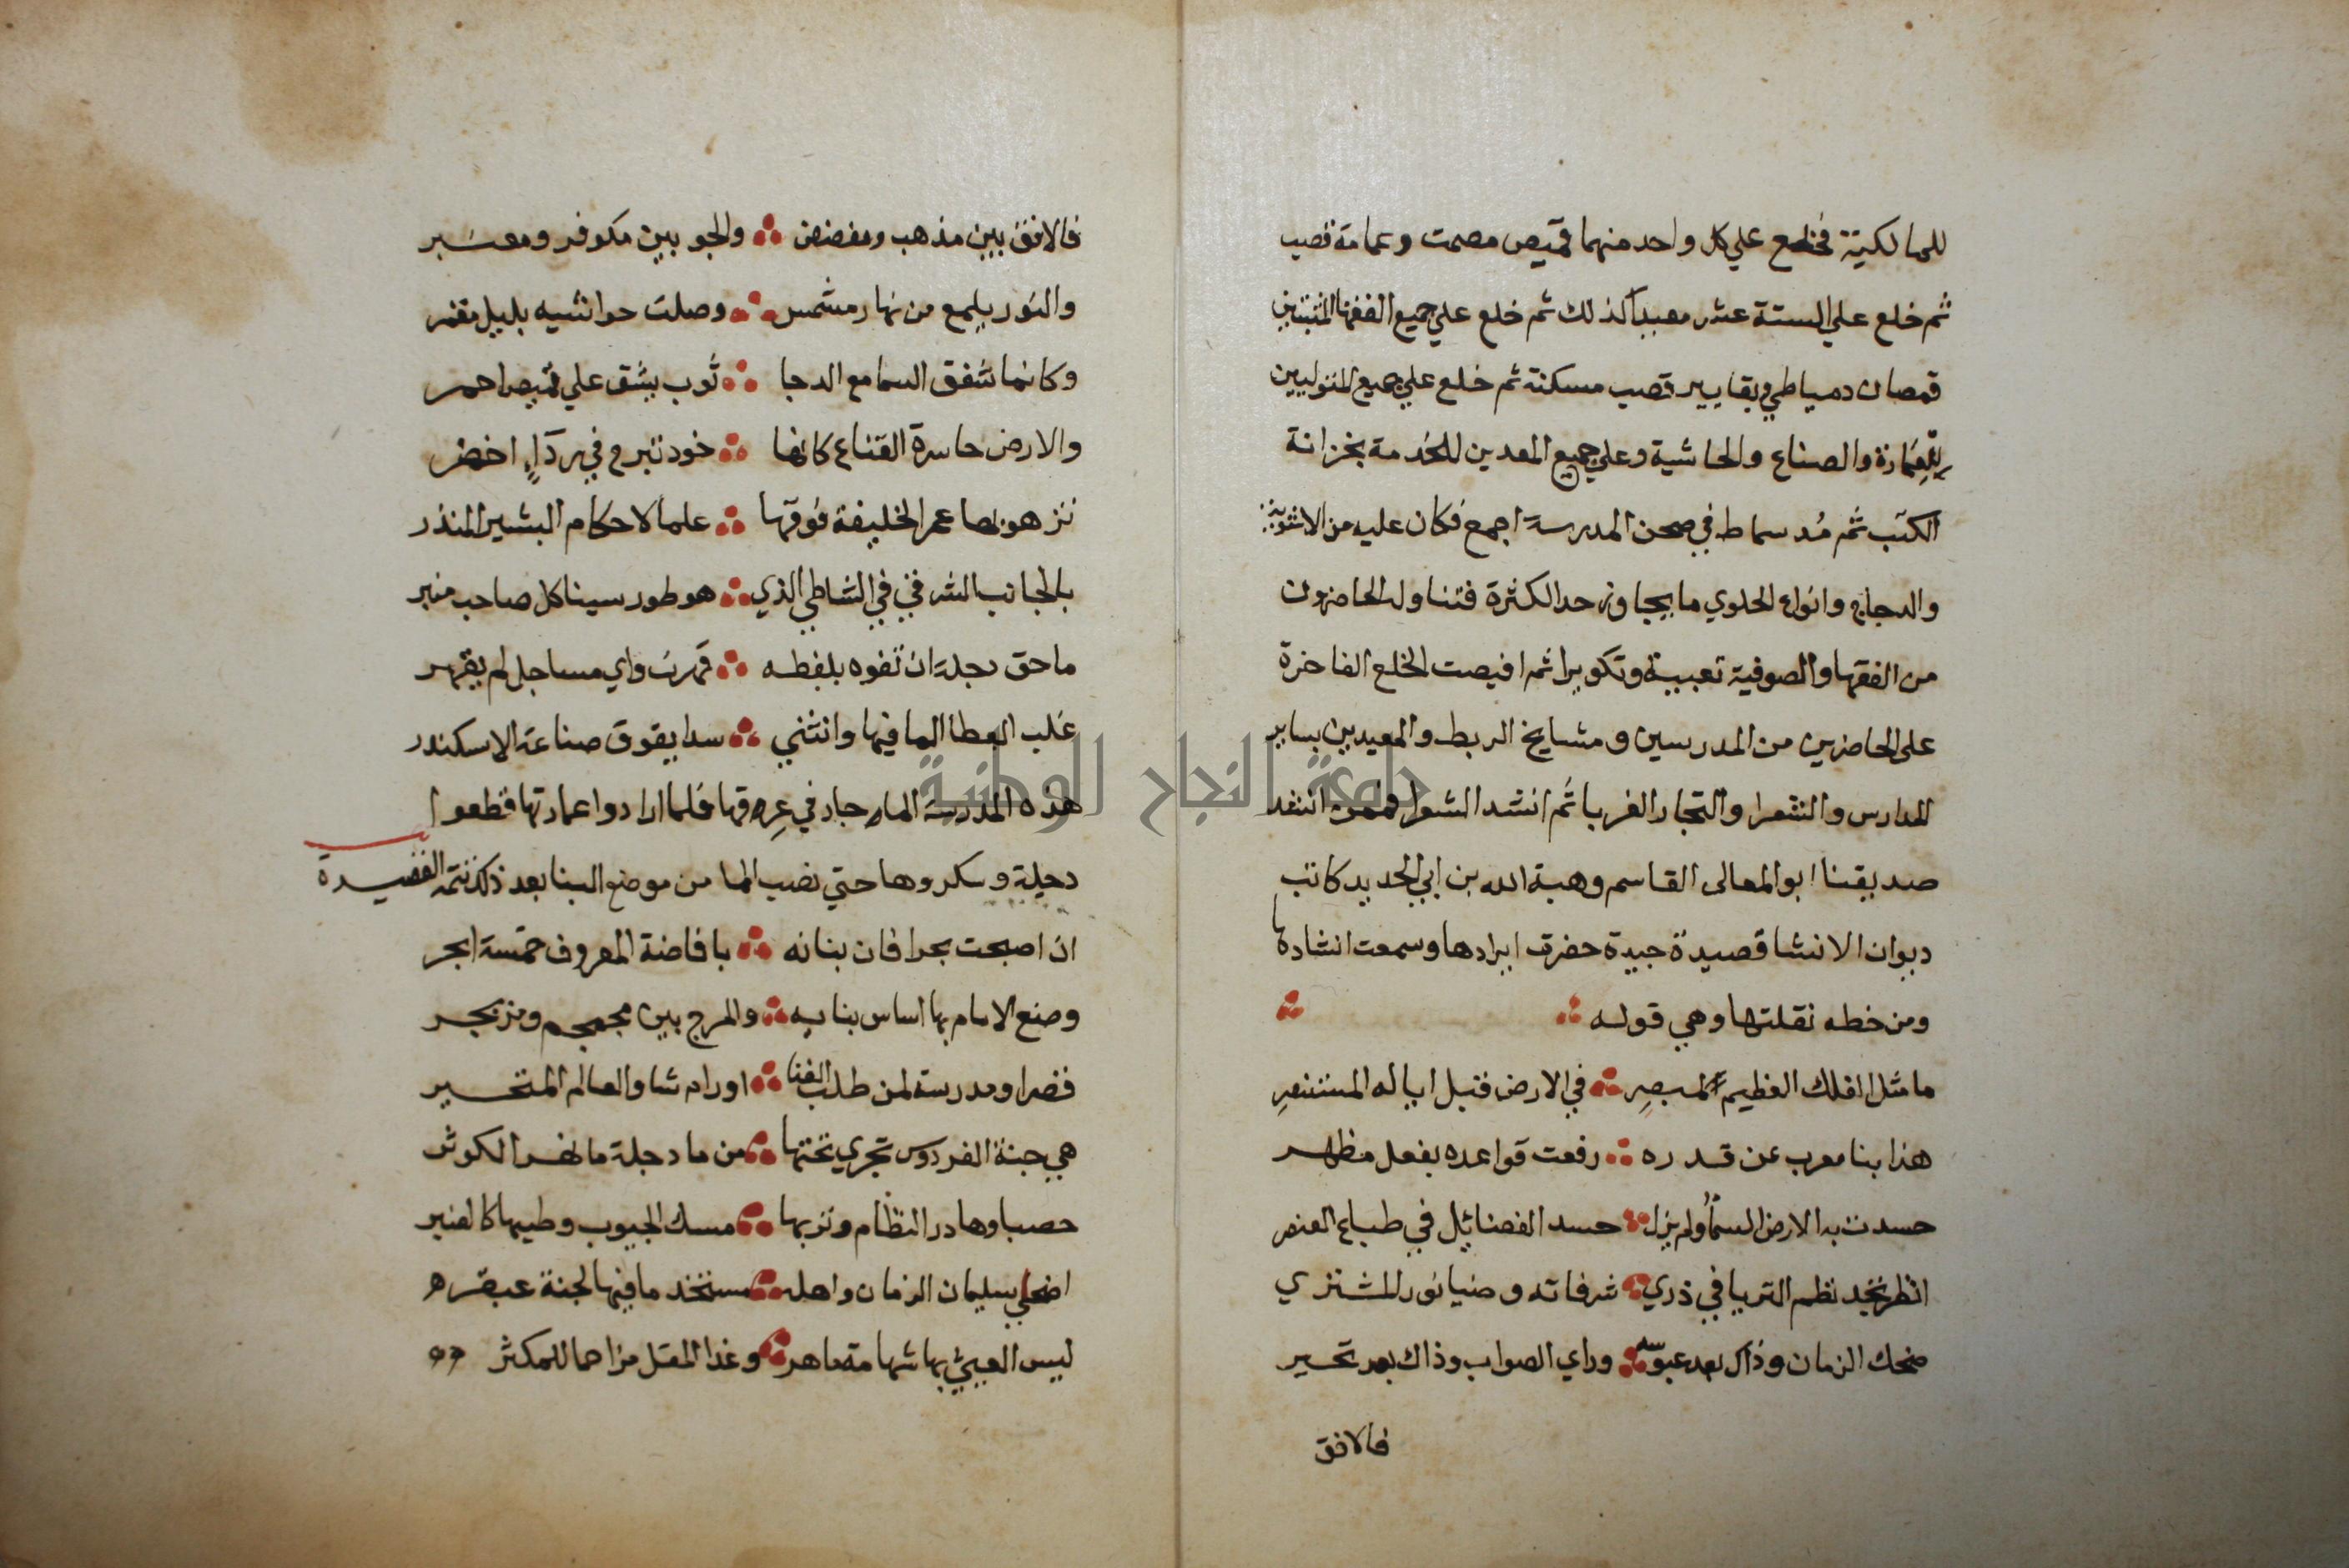 للمالكية فخلع علي كل واحد منهما قميص مصمت وعمامة قصب
ثم خلع علي الستة عشر معيدا كذلك ثم خلع علي جميع الفقها المثبتين
قمصان دمياطي وبقايير قصب مسكنة ثم خلع علي جميع المتوليين
للعمارة والصناع والحاشية وعلي جميع المعدين للخدمة بخزانة
الكتب ثم مد سماط في صحن المدرسة اجمع فكان عليه من الاشوية
والدجاج وانواع الحلوي ما يجاوز حد الكثرة فتناوله الحاضرون
من الفقها والصوفية تعبية وتكويرا ثم افيضت الخلع الفاخرة
على الحاضرين من المدرسين ومشايخ الربط والمعيدين بساير
المدارس والشعرا والتجار الغربا ثم انشد الشعرا فممن انشد
صديقنا ابو المعالى القاسم وهبة الله بن ابي الحديد كاتب
ديوان الانشا قصيدة جيدة حضرت ايرادها وسمعت انشادها
ومن خطه نقلتها وهي قوله
ما مثل الفلك العظيم المبصر في الارض قبل ايالة المستنصر
هذا بنا معرب عن قدره رفعت قواعده بفعل مظهر
حسدت به الارض السماُ ولم يزل حسد الفضايل في طباع العنصر
انظر تجد نظم الثريا في ذري شرفاته وضيا نور المشتري
ضحك الزمان وذاك بعد عبوسه وراي الصواب وذاك بعد تحير
فالافق
فالافق بين مذهب ومفضض والجو بين مكوفر ومعنبر
والنور يلمع من نهار مشمس وصلت حواشيه بليل مقمر
وكانما شفق السما مع الدجا ثوب يشق علي قميص احمر
والارض حاسرة القناع كانها خود تبرج في رداٍ اخضر
تزهو بها عمر الخليفة فوقها علما لاحكام البشير المنذر
بالجانب الشرقي في الشاطي الذي هو طور سينا كل صاحب منبر
ما حق دجلة ان تفوه بلفظه قهرت واي مساجل لم يقهر
غلب العطا الما فيها وانثني سدا يفوق صناعة الاسكندر
هذه المدرسة الما جار في عرقها فلما ارادوا عمارتها قطعوا
دجلة وسكروها حتي نضب الما من موضع البنا بعد ذلك تتمة القصيدة
ان اصبحت بحرا فان بنانه بافاضة المعروف خمسة ابحر
وضع الامام بها اساس بنايه والمرج بين مجمجم ومزمجر
قصرا ومدرسة لمن طلب الغنا او رام شاو العالم المتحير
هي جنة الفردوس تجري تحتها من ما دجلة ما نهر الكوثر
حصباوها در النظام وتربها مسك الجيوب وطيبها كالعنبر
اضحي سليمان الزمان واهله مستخد ما فيها لجنة عبقر
ليس العييُّ بها شهامة ماهر وغدا المقل مزاحما للمكثر
جامعة النجاح الوطنية